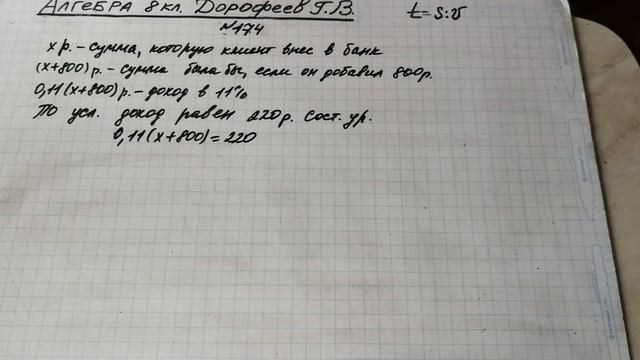 Алгебра 8 кл. Дорофеев Г.В. t = S : v
№174
x р. – сумма, которую клиент внес в банк
(x+800) р. – сумма была бы, если он добавил 800 р.
0,11(x+800) р. – доход в 11%
По усл. доход равен 220 р. Сост. ур.
0,11(x+800) = 220